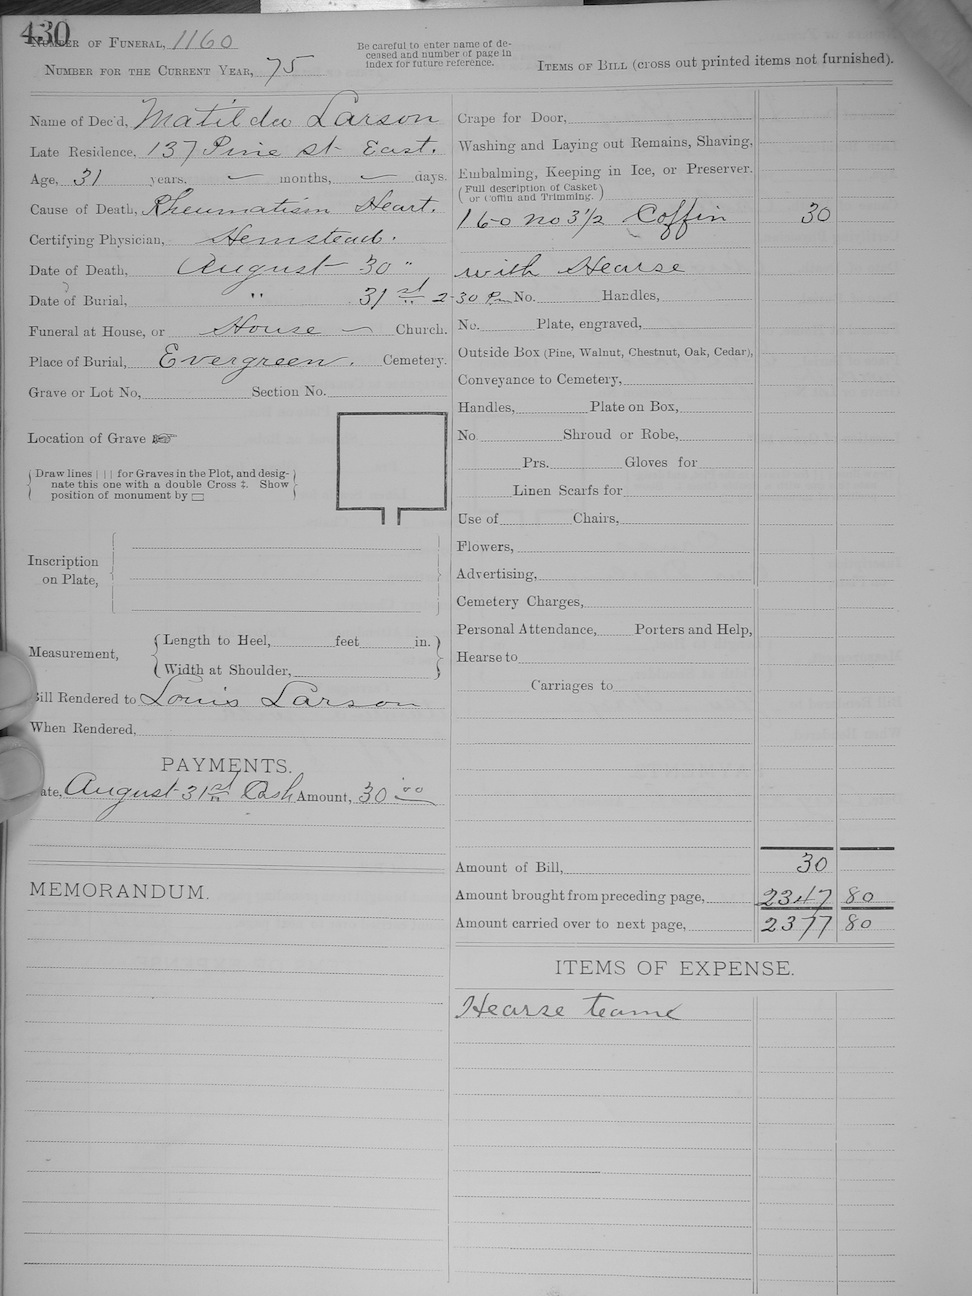 430
NUMBER OF FUNERAL, 1160
NUMBER FOR THE CURRENT YEAR, 75
Be careful to enter name of de-
ceased and number of page in
index for future reference.
ITEMS OF BILL (cross out printed items not furnished).
Name of Dec'd, Matilda Larson
Late Residence, 137 Pine St East.
Age, 31 years, months, days.
Cause of Death, Rheumatism Heart.
Certifying Physician, Hemstead.
Date of Death, August 30 "
Date of Burial, " 31st 2-30 Pm
Funeral at House, or House Church.
Place of Burial, Evergreen. Cemetery.
Grave or Lot No, Section No.
Location of Grave ☞
Draw lines | | | for Graves in the Plot, and desig-
nate this one with a double Cross ‡. Show
position of monument by ▭
Inscription
on Plate,
Measurement,
Length to Heel, feet in.
Width at Shoulder,
Bill Rendered to Louis Larson
When Rendered,
PAYMENTS.
ate, August 31st Cash Amount, 30 00
MEMORANDUM.
Crape for Door,
Washing and Laying out Remains, Shaving,
Embalming, Keeping in Ice, or Preserver.
(Full description of Casket
or Coffin and Trimming.)
160 no 3½ Coffin 30
with Hearse
No. Handles,
No. Plate, engraved,
Outside Box (Pine, Walnut, Chestnut, Oak, Cedar),
Conveyance to Cemetery,
Handles, Plate on Box,
No. Shroud or Robe,
Prs. Gloves for
Linen Scarfs for
Use of Chairs,
Flowers,
Advertising,
Cemetery Charges,
Personal Attendance, Porters and Help,
Hearse to
Carriages to
Amount of Bill, 30
Amount brought from preceding page, 2347 80
Amount carried over to next page, 2377 80
ITEMS OF EXPENSE.
Hearse team